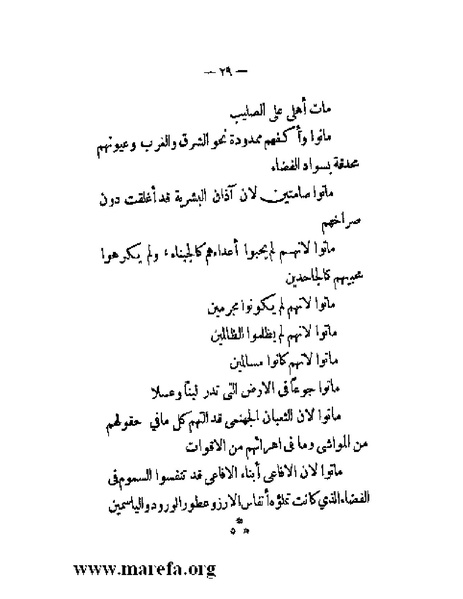 — ٢٩ —
مات أهلي على الصليب
ماتوا وأكفهم ممدودة نحو الشرق والغرب وعيونهم
محدقة بسواد الفضاء
ماتوا صامتين لان آذان البشرية قد أغلقت دون
صراخهم
ماتوا لانهم لم يحبوا أعداءهم كالجبناء ولم يكرهوا
محبيهم كالجاحدين
ماتوا لانهم لم يكونوا مجرمين
ماتوا لانهم لم يظلموا الظالمين
ماتوا لانهم كانوا مسالمين
ماتوا جوعاً في الارض التي تدر لبناً وعسلا
ماتوا لان الثعبان الجهنمي قد التهم كل مافي حقولهم
من المواشي وما في اهرائهم من الاقوات
ماتوا لان الافاعي أبناء الافاعي قد تنفسوا السموم في
الفضاء الذي كانت تملؤه أنفاس الارز وعطور الورود والياسمين
***
www.marefa.org